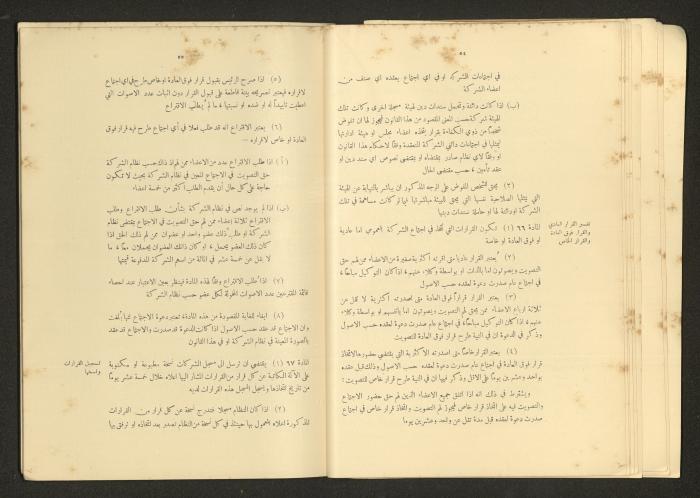 ٥٤
في اجتماعات الشركة او في اي اجتماع يعقده اي صنف من
اعضاء الشركة
(ب) اذا كانت دائنة وتحمل سندات دين لهيئة مسجلة اخرى وكانت تلك
الهيئة شركة حسب المعنى المقصود من هذا القانون فيجوز لها ان تفوض
شخصاً من ذوي الكفاءة بقرار يتخذه اعضاء مجلس او هيئة ادارتها
ليمثلها في اجتماعات دائني الشركة المنعقدة وفقاً لاحكام هذا القانون
او وفقاً لاي نظام صادر بمقتضاه او بمقتضى نصوص اي سند دين او
عقد تأمين ، حسب مقتضى الحال
(٢) يحق للشخص المفوض على الوجه المذكور ان يباشر بالنيابة عن الهيئة
التي يمثلها الصلاحية نفسها التي يحق للهيئة مباشرتها فيما لو كانت مساهمة في تلك
الشركة او دائنة لها او حاملة سندات دينها
تفسير القرار العادي
والقرار فوق العادة
والقرار الخاص
المادة ٦٦ (١) تكون القرارات التي تتخذ في اجتماع الشركة العمومي اما عادية
او فوق العادة او خاصة
(٢) يعتبر القرار عادياً متى اقرته اكثرية صغيرة من الاعضاء ممن لهم حق
التصويت ويصوتون اما بالذات او بواسطة وكلاء عنهم ، اذا كان التوكيل مباحاً ،
في اجتماع عام صدرت دعوة لعقده حسب الاصول
(٣) يعتبر القرار قراراً فوق العادة متى اصدرته اكثرية لا تقل عن
ثلاثة ارباع الاعضاء ممن يحق لهم التصويت ويصوتون اما بانفسهم او بواسطة وكلاء
عنهم ، اذا كان التوكيل مباحاً ، في اجتماع عام صدرت دعوة لعقده حسب الاصول
وذكر في الدعوة ان في النية طرح قرار فوق العادة للتصويت
(٤) يعتبر القرار خاصاً متى اصدرته الاكثرية التي يقتضي حضورها لاتخاذ
قرار فوق العادة في اجتماع عام صدرت دعوة لعقده حسب الاصول وذلك قبل عقده
بواحد وعشرين يوماً على الاقل وذكر فيها ان في النية طرح قرار خاص للتصويت :
ويشترط في ذلك انه اذا اتفق جميع الاعضاء الذين لهم حق حضور الاجتماع
والتصويت فيه على اتخاذ قرار خاص فيجوز لهم التصويت واتخاذ قرار خاص في اجتماع
صدرت دعوة لعقده قبل مدة تقل عن واحد وعشرين يوماً
٥٥
(٥) اذا صرح الرئيس بقبول قرار فوق العادة او خاص طرح في اي اجتماع
لاقراره فيعتبر تصريحه بينة قاطعة على قبول القرار دون اثبات عدد الاصوات التي
اعطيت تأييداً له او ضده او نسبتها ، ما لم يطلب الاقتراع
(٦) يعتبر الاقتراع انه قد طلب فعلا في أي اجتماع طرح فيه قرار فوق
العادة او خاص لاقراره —
(أ) اذا طلب الاقتراع عدد من الاعضاء ممن لهم اذ ذاك حسب نظام الشركة
حق التصويت في الاجتماع المعين في نظام الشركة بحيث لا تكون
حاجة على كل حال أن يقدم الطلب أكثر من خمسة اعضاء
(ب) اذا لم يوجد نص في نظام الشركة بشأن طلب الاقتراع وطلب
الاقتراع ثلاثة اعضاء ممن لهم حق التصويت في الاجتماع بمقتضى نظام
الشركة او طلب ذلك عضو واحد او عضوان ممن لهم ذلك الحق اذا
كان ذلك العضو يحمل ، او كان ذانك العضوان يحملان معاً ، ما
لا يقل عن خمسة عشر في المائة من اسهم الشركة المدفوعة قيمتها
(٧) اذا طلب الاقتراع وفقاً لهذه المادة فينظر بعين الاعتبار عند احصاء
قائمة المقترعين عدد الاصوات المخولة لكل عضو حسب نظام الشركة
(٨) ايفاء للغاية المقصودة من هذه المادة ، تعتبر دعوة الاجتماع انها بلغت
وان الاجتماع قد عقد حسب الاصول اذا كانت الدعوة قد صدرت والاجتماع قد عقد
بالصورة المعينة في نظام الشركة او في هذا القانون
تسجيل القرارات
ونسخها
المادة ٦٧ (١) يقتضي ان ترسل الى مسجل الشركات نسخة مطبوعة او مكتوبة
على الآلة الكاتبة عن كل قرار من القرارات المشار اليها اعلاه خلال خمسة عشر يوماً
من تاريخ اتخاذها ويسجل المسجل هذه القرارات لديه
(٢) اذا كان النظام مسجلا فتدرج نسخة عن كل قرار من القرارات
المذكورة اعلاه المعمول بها حينئذ في كل نسخة من النظام تصدر بعد اتخاذه او ترفق بها